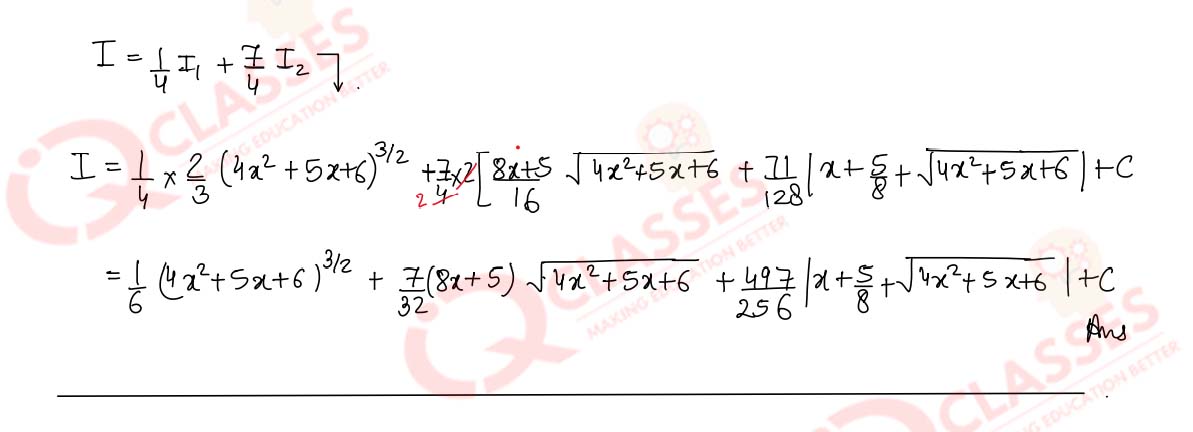 I = 1/4 I₁ + 7/4 I₂ ↴ .
I = 1/4 × 2/3 (4x² + 5x+6)^3/2 + 7/4 × 2 [ 8x+5/16 √4x²+5x+6 + 71/128 | x + 5/8 + √4x²+5x+6 | + C
2
= 1/6 (4x²+5x+6)^3/2 + 7/32 (8x+5) √4x²+5x+6 + 497/256 | x + 5/8 + √4x²+5x+6 | + C
Ans
CLASSES
MAKING EDUCATION BETTER
CLASSES
MAKING EDUCATION BETTER
CLASSES
MAKING EDUCATION BETTER